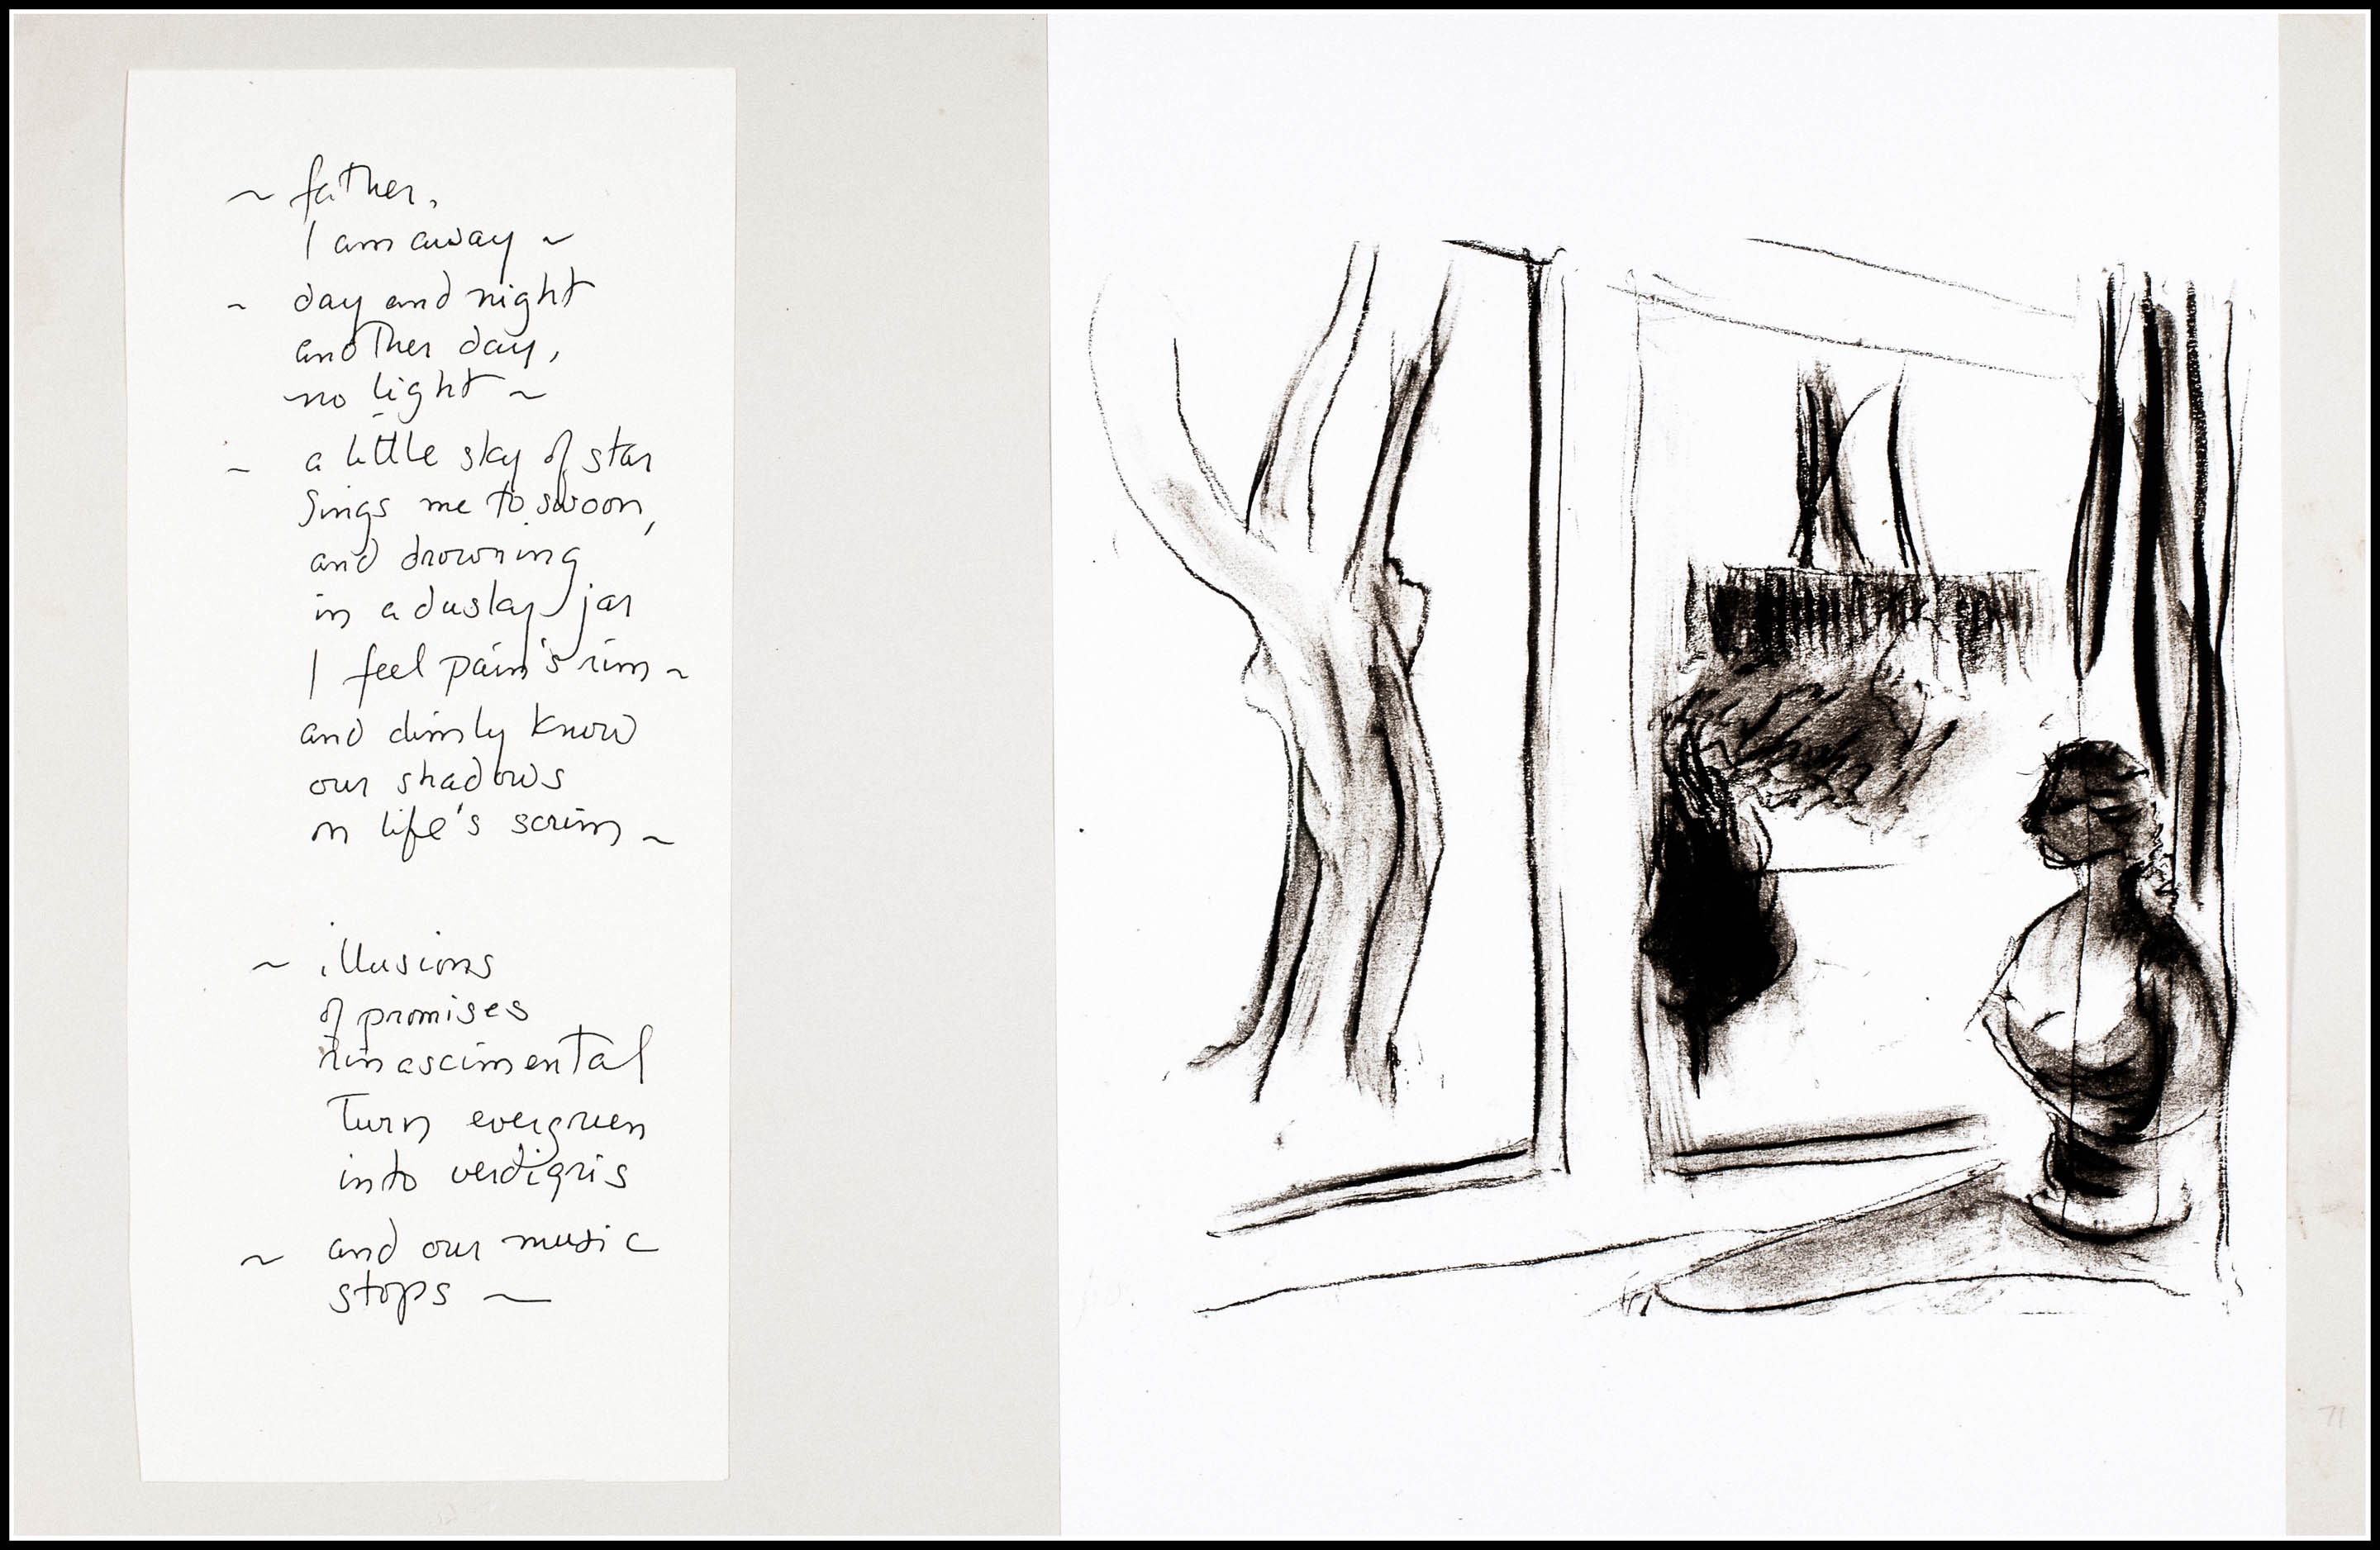 ~ father,
I am away ~
~ day and night
another day,
no light ~
~ a little sky of star
sings me to swoon,
and drowning
in a dusky jar
I feel pain's rim ~
and dimly know
our shadows
on life's scrim ~
~ illusions
of promises
rinascimental
Turn evergreen
into verdigris
~ and our music
stops ~
71